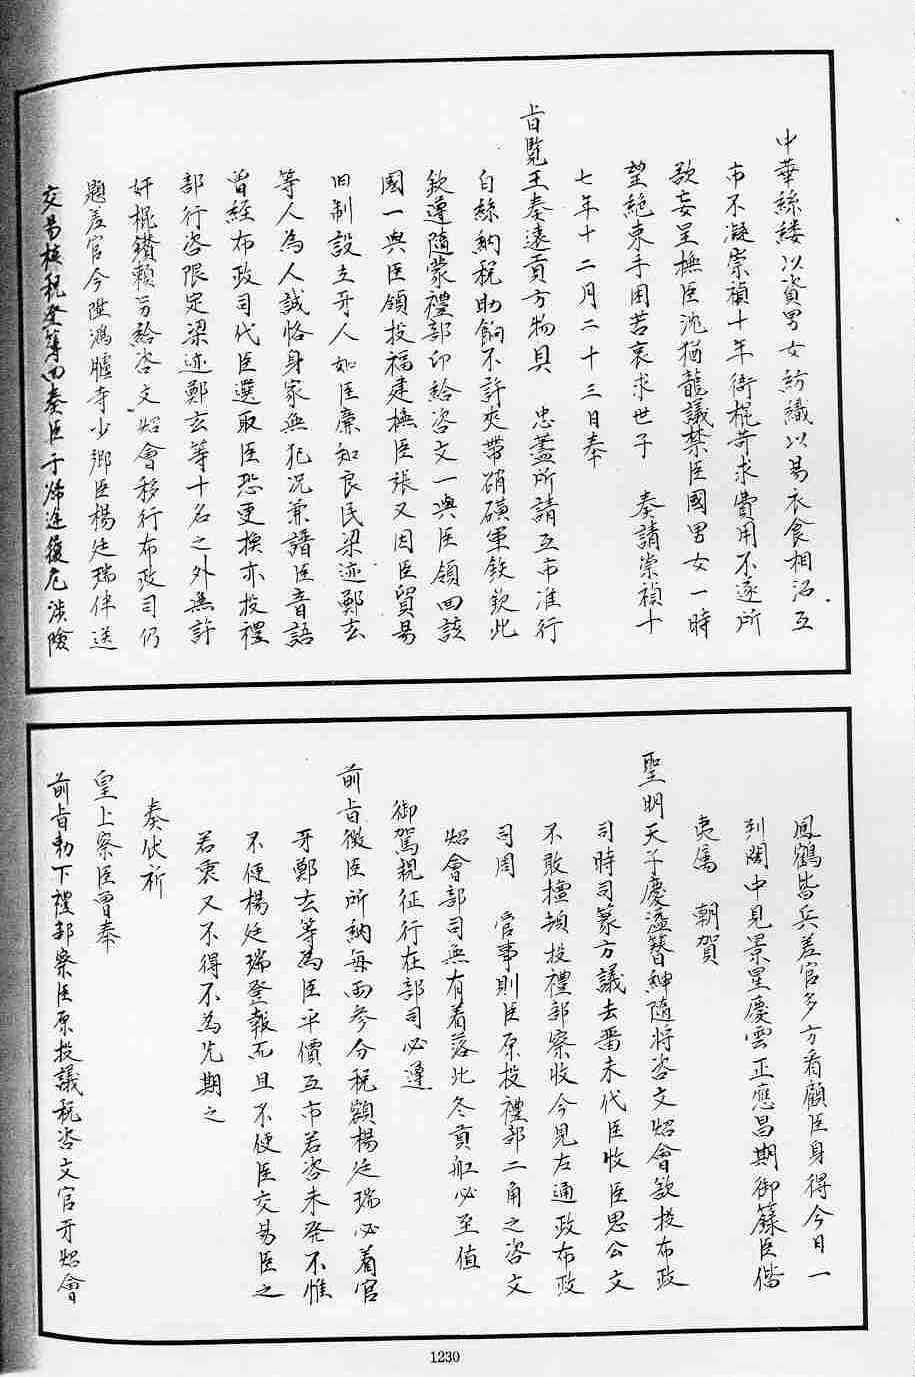 中華絲縷以資男女紡織以易衣食相沿互
市不凝崇禎十年衙棍苛求費用不逐所
欲妄呈撫臣沈猶龍議禁臣國男女一時
望絕束手困苦哀求世子　奏請崇禎十
七年十二月二十三日奉
旨覽王奏遠貢方物具　忠藎所請互市准行
白絲納稅助餉不許夾帶硝磺軍鉄欽此
欽遵隨蒙禮部印給咨文一與臣領回該
國一與臣領投福建撫臣張又因臣貿易
旧制設立牙人如臣廉知良民梁迹鄭玄
等人為人誠恪身家無犯况兼譜臣音語
曾經布政司代臣選取臣恐更換亦投禮
部行咨限定梁迹鄭玄等十名之外無許
奸棍鑽賴另給咨文炤會移行布政司仍
題差官今陞鴻臚寺少卿臣楊廷瑞伴送
交易核稅登等回奏臣于歸途復尼涉險
鳳鶴皆兵差官多方看顧臣身得今日一
到闕中見景星慶雲正應昌期御籙臣偕
夷属　朝賀
聖明天子慶溢簪紳隨將咨文炤會欲投布政
司時司篆方議去畨未代臣收臣思公文
不敢擅頓投禮部察收今見左通政布政
司周　管事則臣原投禮部二角之咨文
炤會部司無有着落此冬貢舡必至值
御駕親征行在部司必遵
前旨徵臣所納每兩参分稅額楊廷瑞必着官
牙鄭玄等為臣平價互市若咨未発不惟
不便楊廷瑞登報而且不便臣交易臣之
若衷又不得不為先期之
奏伏祈
皇上察臣曽奉
前旨勅下禮部察臣原投議稅咨文官牙炤會
1230